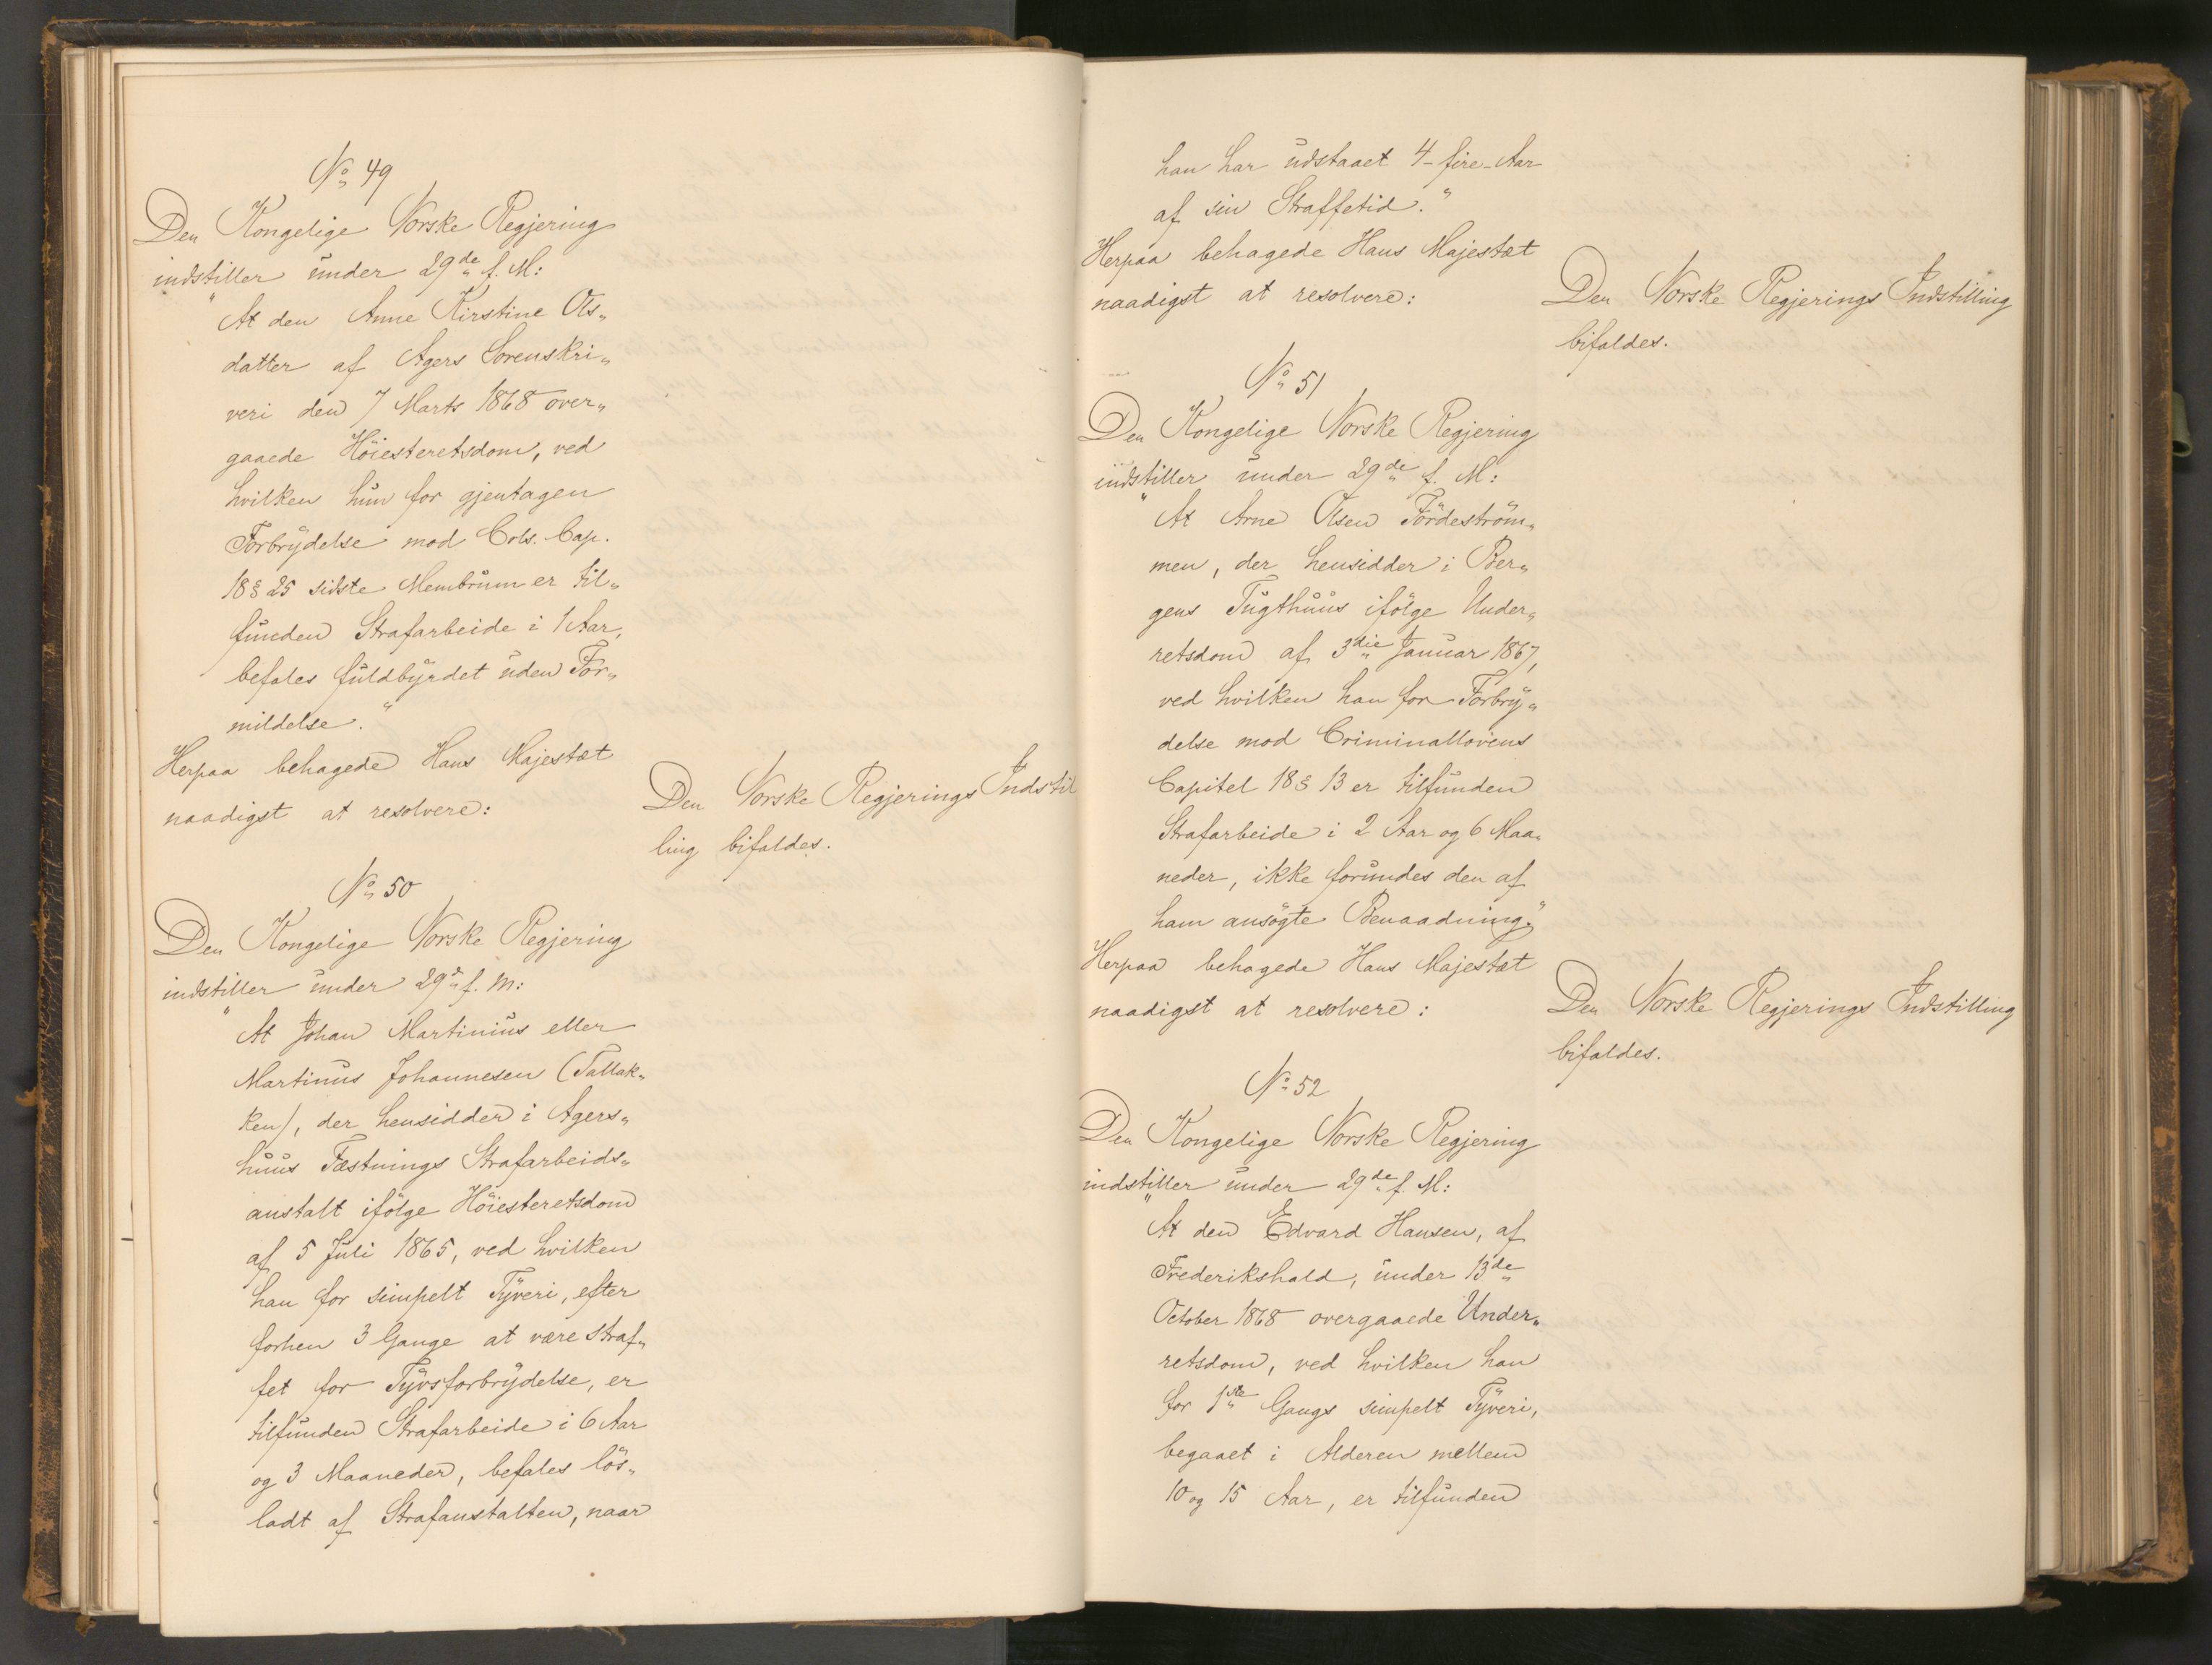 No 49
Den Kongelige Norske Regjering
indstiller under 29de f. M:
"At den Anne Kirstine Ols„
datter af Agers Sorenskri„
veri den 7 Marts 1868 over„
gaaede Höiesteretsdom, ved
hvilken hun for gjentagen
Forbrydelse mod Cols. Cap.
18 § 25 sidste Membrum er til„
funden Strafarbeide i 1 Aar,
befales fuldbyrdet uden For„
mildelse."
Herpaa behagede Hans Majestæt
naadigst at resolvere:
Den Norske Regjerings Indstil
ling bifaldes.
No 50
Den Kongelige Norske Regjering
indstiller under 29d f. M:
"At Johan Martinius eller
Martinus Johannesen (Tallak„
ken), der hensidder i Agers„
huus Fæstnings Strafarbeids„
anstalt ifölge Höiesteretsdom
af 5 Juli 1865, ved hvilken
han for simpelt Tyveri, efter
forhen 3 Gange at være straf„
fet for Tyvsforbrydelse, er
tilfunden Strafarbeide i 6 Aar
og 3 Maaneder, befales lös„
ladt af Strafanstalten, naar
han har udstaaet 4 - fire - Aar
af sin Straffetid."
Herpaa behagede Hans Majestæt
naadigst at resolvere:
Den Norske Regjerings Indstilling
bifaldes.
No 51
Den Kongelige Norske Regjering
indstiller under 29de f. M:
"At Arne Olsen Fördeström„
men, der hensidder i Ber„
gens Tugthuus ifölge Under„
retsdom af 3die Januar 1867,
ved hvilken han for Forbry„
delse mod Criminallovens
Capitel 18 § 13 er tilfunden
Strafarbeide i 2 Aar og 6 Maa„
neder, ikke forundes den af
ham ansögte Benaadning."
Herpaa behagede Hans Majestæt
naadigst at resolvere:
Den Norske Regjerings Indstilling
bifaldes.
No 52
Den Kongelige Norske Regjering
indstiller under 29de f. M:
"At den Edvard Hansen, af
Frederikshald, under 13de
October 1868 overgaaede Under„
retsdom, ved hvilken han
for 1ste Gangs simpelt Tyveri,
begaaet i Alderen mellem
10 og 15 Aar, er tilfunden